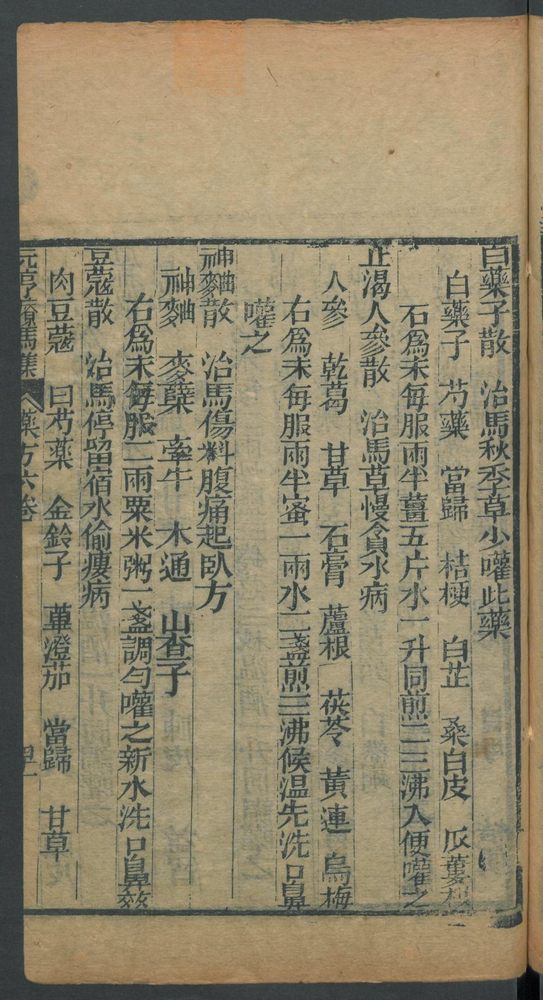 白藥子散　治馬秋季草少嚾此藥
白藥子　芍藥　當歸　桔梗　白芷　桑白皮　瓜蔞根
右爲末每服兩半薑五片水一升同煎二三沸入便嚾之
止渴人參散　治馬草慢貪水病
人參　乾葛　甘草　石膏　蘆根　茯苓　黃連　烏梅
右爲末每服兩半蜜一兩水二盞煎三沸候温先洗口鼻
嚾之
神麯散　治馬傷料腹痛起臥方
神麯　麥櫱　牽牛　木通　山查子
右爲末每服二兩粟米粥一盞調勻嚾之新水洗口鼻效
豆蔻散　治馬停留宿水偷瘻病
肉豆蔻　白芍藥　金鈴子　蓽澄茄　當歸　甘草
元亨療馬集　藥方六卷